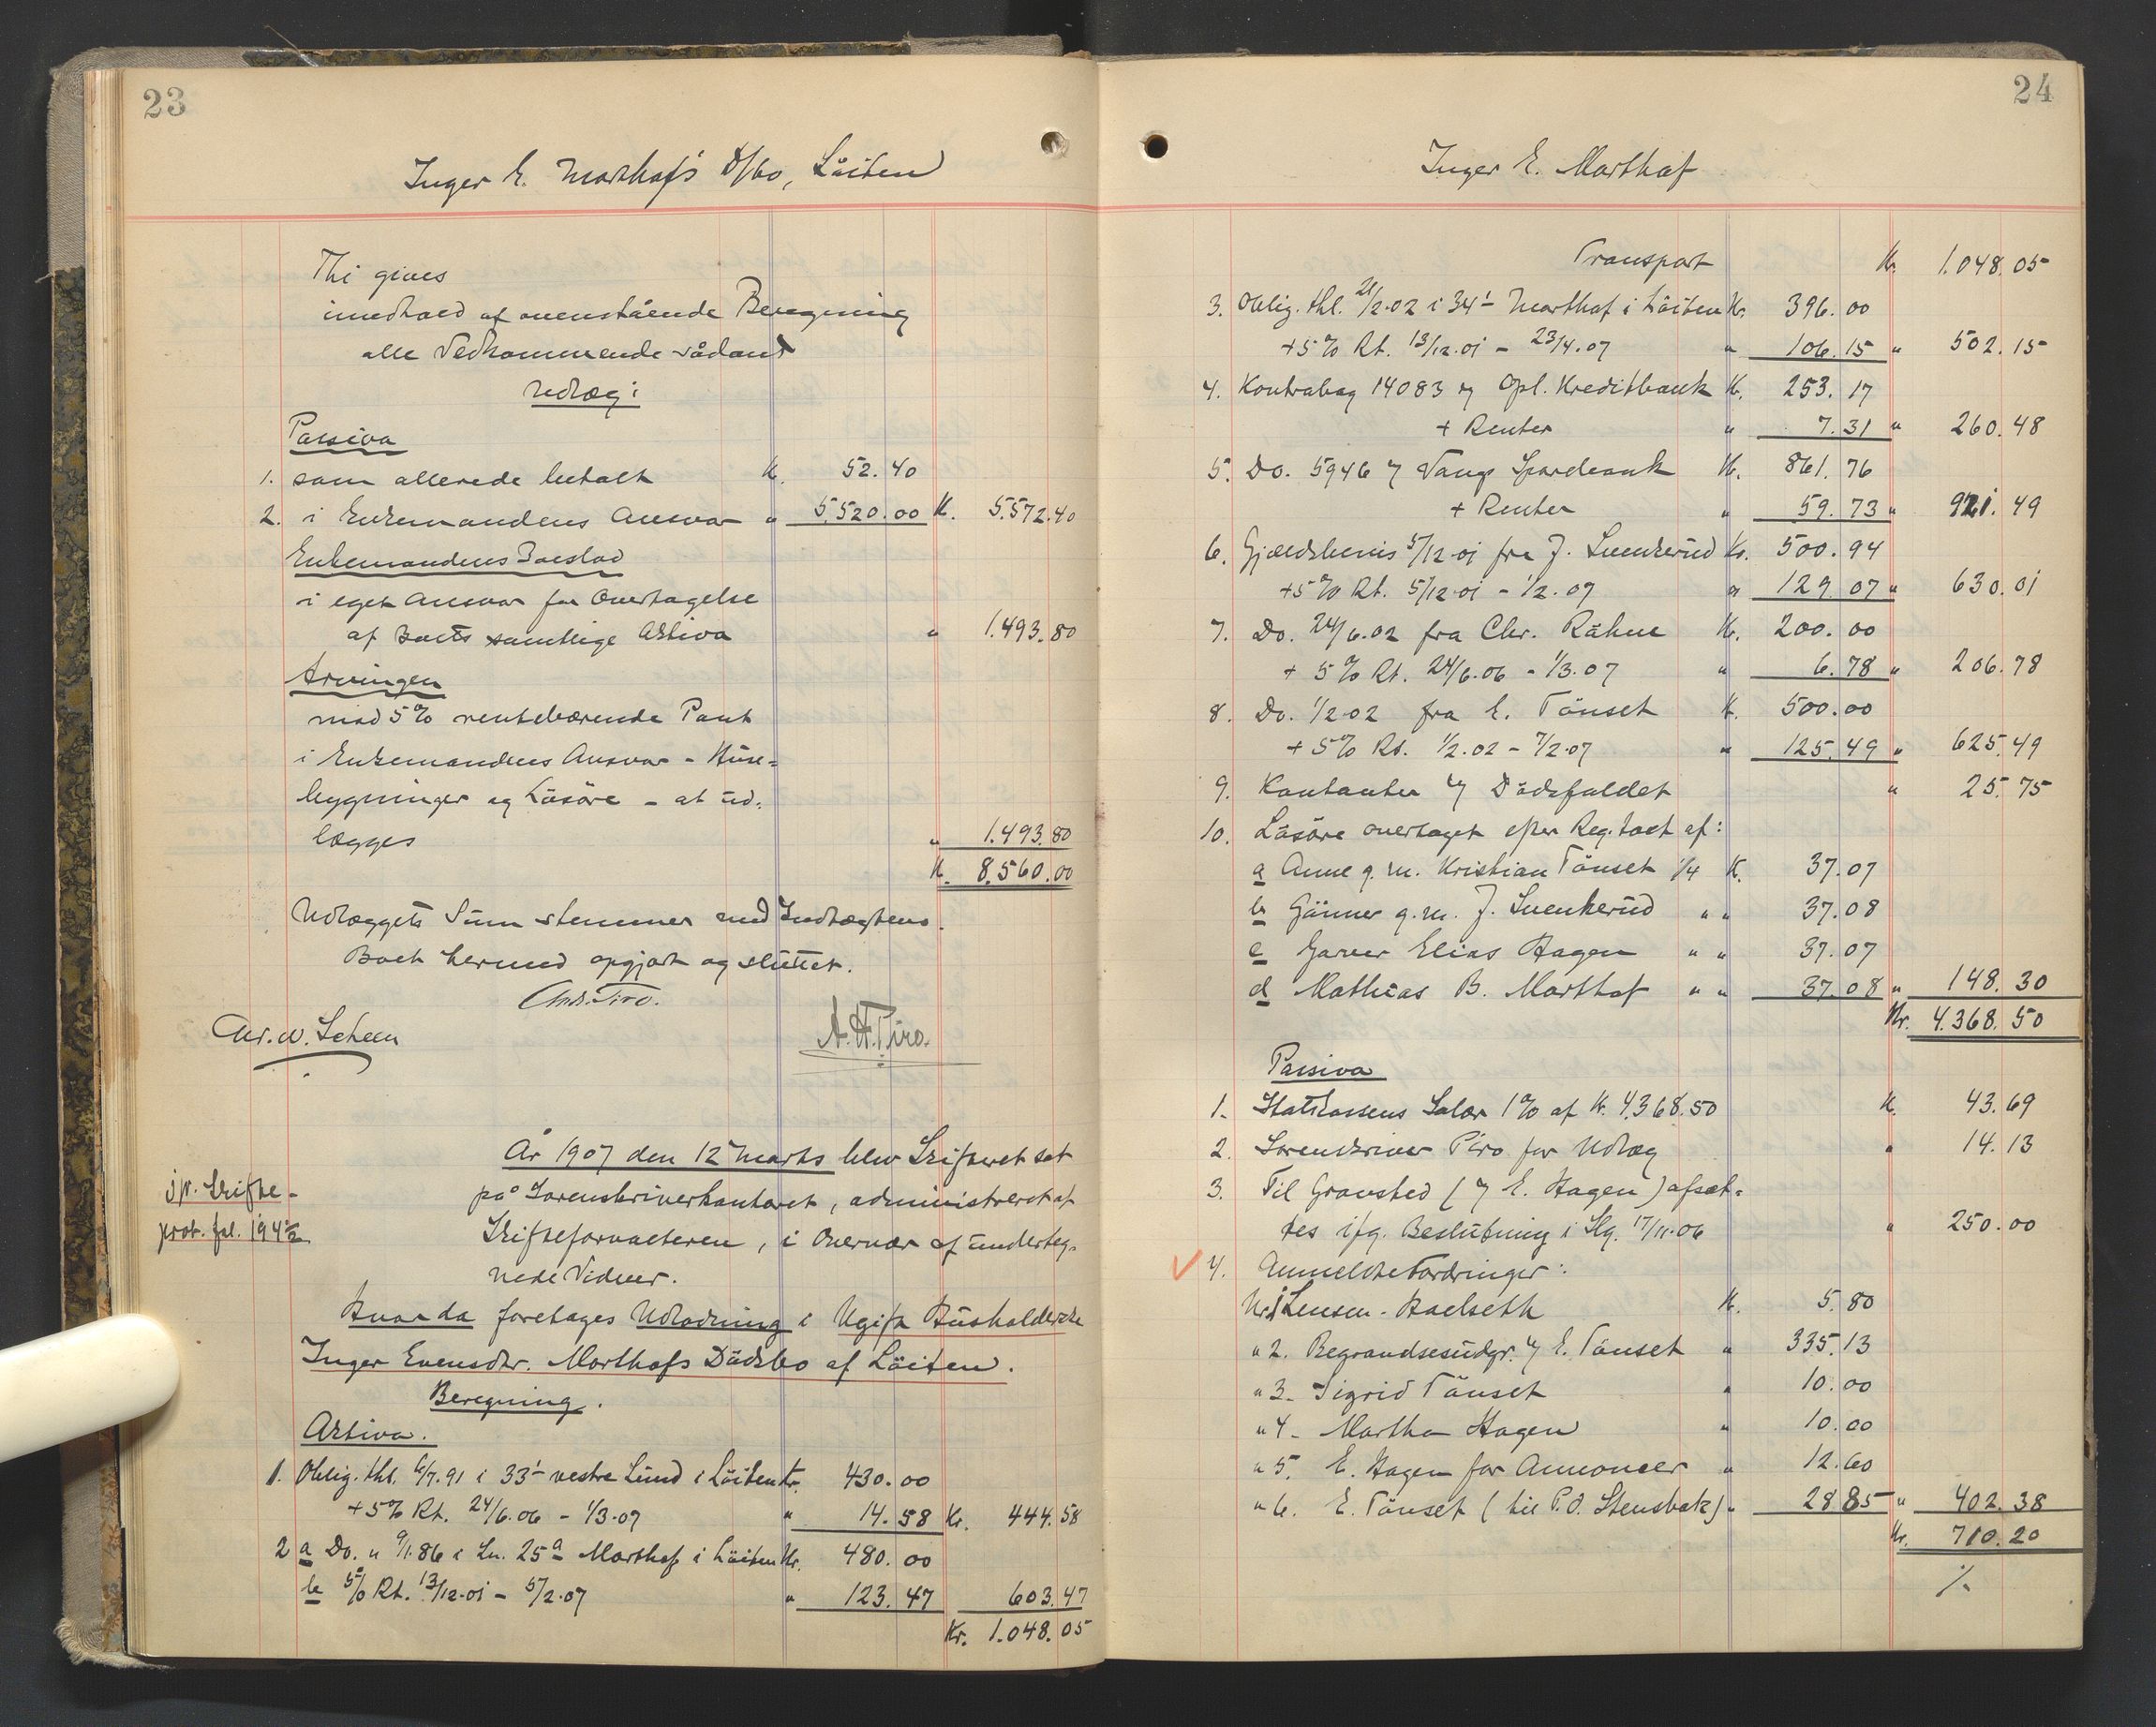 23
Inger E. Morthofs D/bo, Löiten
Thi gives
i medhold af ovenstående Beregning
alle Vedkommende sådant
Udlæg:
Passiva
1. som allerede betalt K. 52.40
2. i Enkemandens Ansvar " 5.520.00 K. 5.572.40
Enkemandens Boeslod
i eget Ansvar for Overtagelse
af Boets samtlige Aktiva " 1.493.80
Arvingen
mod 5% rentebærende Pant
i Enkemandens Ansvar - Huse=
bygninger og Lösöre - at ud=
lægges " 1.493.80
K. 8.560.00
Udlæggets Sum stemmer med Indtægtens.
Boet hermed opgjort og sluttet.
Andr. Piro.
Chr. W. Scheen A. H. Piro.
År 1907 den 12 marts blev Skifteret sat
på Sorenskriverkontoret, administreret af
Skifteforvalteren, i Overvær af underteg-
nede Vidner.
jfr. Skifte-
prot. fol. 194 2/2
Hvor da foretages Udlodning i Ugift Husholderske
Inger Evensdtr. Morthofs Dödsbo af Löiten.
Beregning.
Aktiva.
1. Oblig. thl. 6/7.91 i 33¹ vestre Lund i Löiten Kr. 430.00
+ 5% Rt. 24/6.06 - 1/3.07 " 14.58 Kr. 444.58
2 a Do. " 9/1.86 i Ln. 25 a Morthof i Löiten Kr. 480.00
b 5% Rt. 13/12.01 - 5/2.07 " 123.47 603.47
Kr. 1.048.05
24
Inger E. Morthof
Transport Kr. 1.048.05
3. Oblig. thl. 21/2.02 i 34¹ Morthof i Löiten Kr. 396.00
+ 5% Rt. 13/12.01 - 23/4.07 " 106.15 " 502.15
4. Kontrabog 14083 i Opl. Kreditbank K. 253.17
+ Renter " 7.31 " 260.48
5. Do. 5946 i Vangs Sparebank K. 861.76
+ Renter " 59.73 " 921.49
6. Gjældsbevis 5/12.01 fra J. Svenkerud Kr. 500.94
+ 5% Rt. 5/12.01 - 1/2.07 " 129.07 " 630.01
7. Do. 24/6.02 fra Chr. Råhne K. 200.00
+ 5% Rt. 24/6.06 - 1/3.07 " 6.78 " 206.78
8. Do. 1/2.02 fra E. Tönset K. 500.00
+ 5% Rt. 1/2.02 - 7/2.07 " 125.49 " 625.49
9. Kontanter v/ Dödsfaldet " 25.75
10. Lösöre overtaget efter Reg. tact af:
a Anne g. m. Kristian Tönset 1/4 K. 37.07
b Gönner g. m. J. Svenkerud " " 37.08
c Garver Elias Hagen " " 37.07
d Mathias B. Morthof " " 37.08 " 148.30
Kr. 4.368.50
Passiva
1. Statskassens Salær 1% af Kr. 4.368.50 K. 43.69
2. Sorenskriver Piro for Udlæg " 14.13
3. Til Gravsted (v/ E. Hagen) afsæt-
tes ifg. Beslutning i Slg. 17/11.06 " 250.00
4. Anmeldte Fordringer:
Nr. 1 Lensm. Hoelseth K. 5.80
" 2. Begravelsesudgr. v/ E. Tönset " 335.13
" 3. Sigrid Tönset " 10.00
" 4. Martha Hagen " 10.00
" 5. E. Hagen for Annoncer " 12.60
" 6. E. Tönset (til P. O. Stensbak) " 28.85 " 402.38
Kr. 710.20
./.